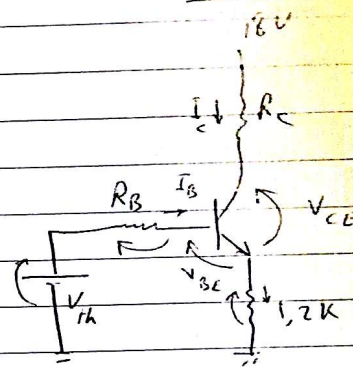 18V
I_C R_C
R_B I_B
V_CE
V_BE
V_th 1,2K